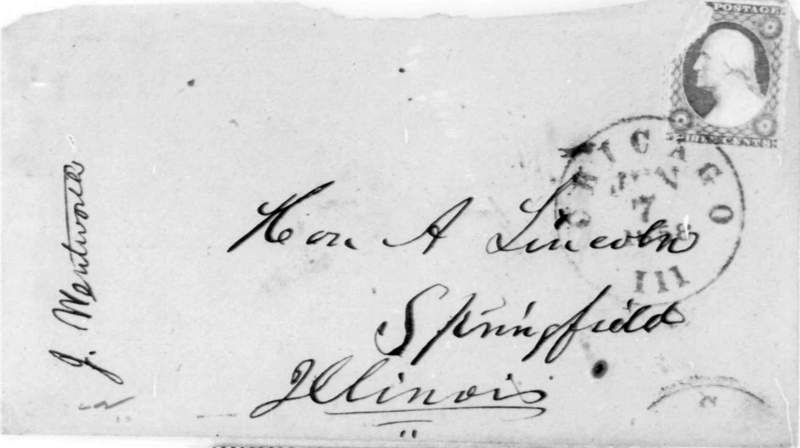 POSTAGE
THREE CENTS
CHICAGO
JUN
7
1858
Ill
Hon A Lincoln
Springfield
Illinois
J. Wentworth